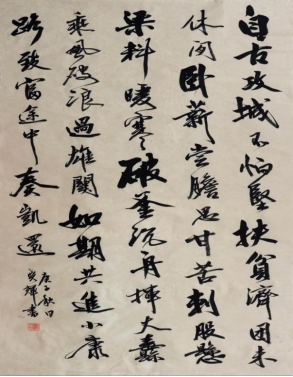 自古攻城不怕坚扶贫济困未
休闲卧薪尝胆思甘苦刺股悬
梁料暖寒破釜沉舟挥大纛
乘风破浪过雄关如期共进小康
路致富途中奏凯还
庚子秋日
书